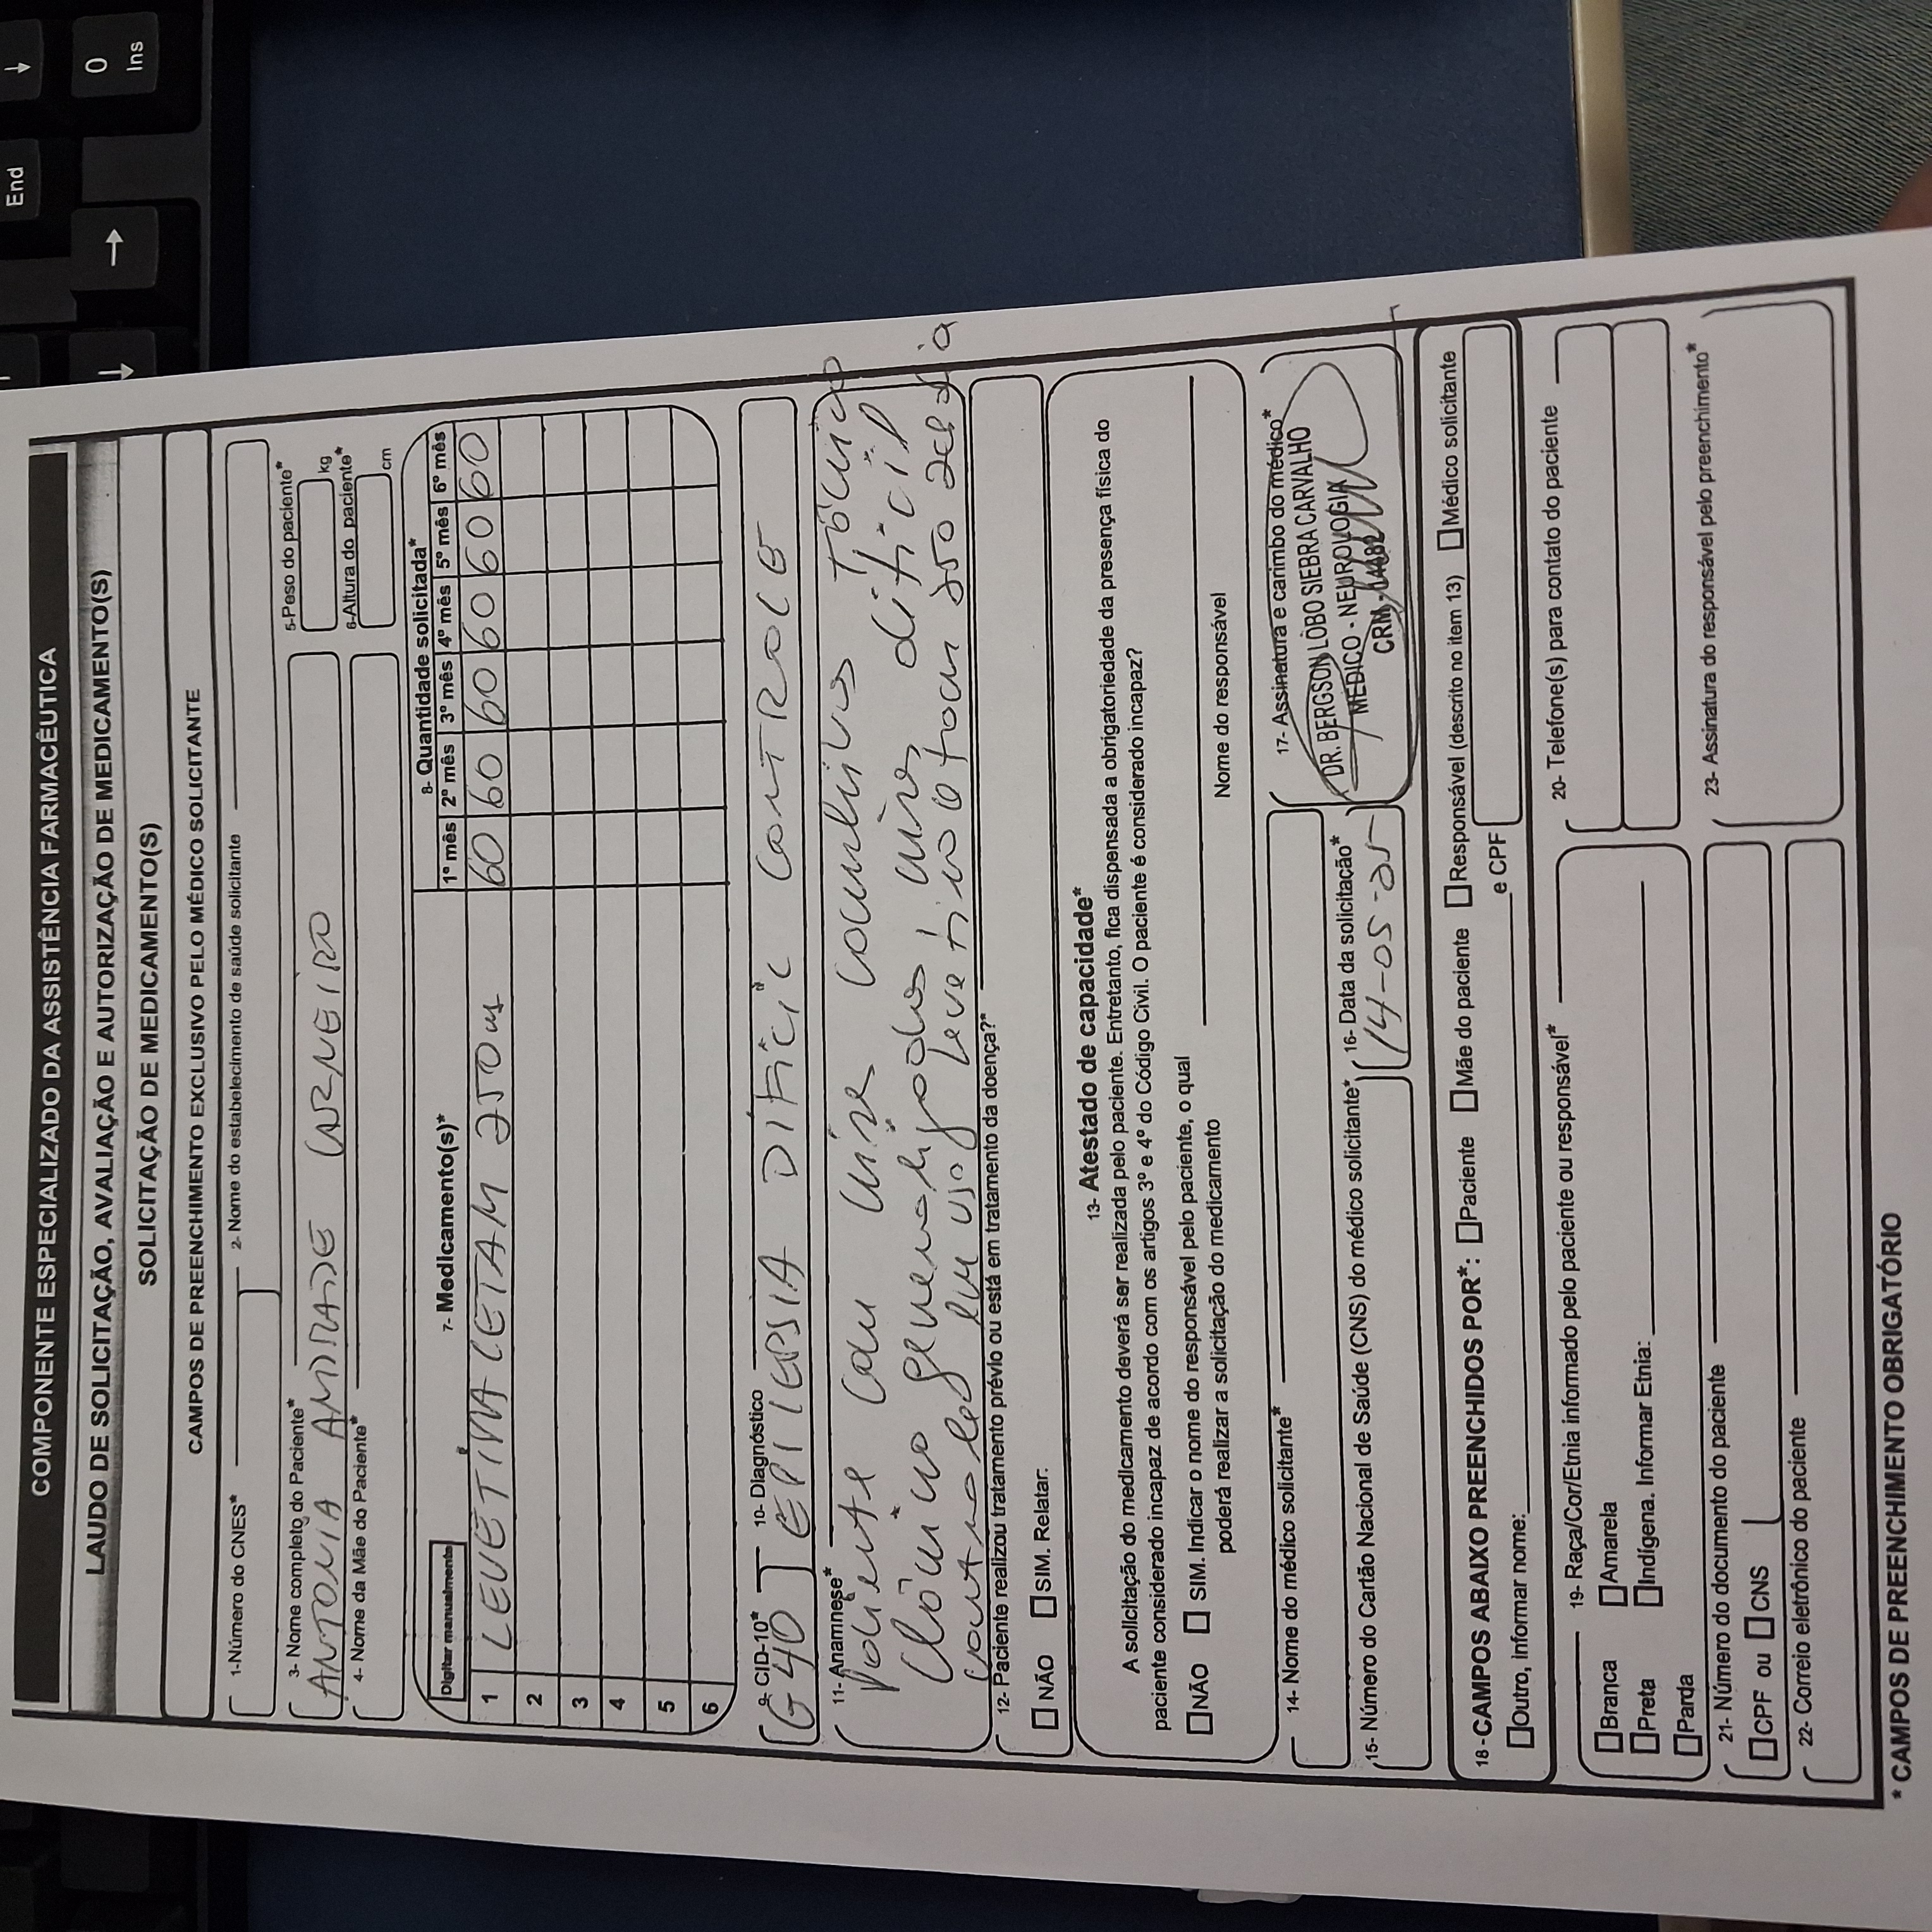 End
↓
↓
→
0
Ins
COMPONENTE ESPECIALIZADO DA ASSISTÊNCIA FARMACÊUTICA
LAUDO DE SOLICITAÇÃO, AVALIAÇÃO E AUTORIZAÇÃO DE MEDICAMENTO(S)
SOLICITAÇÃO DE MEDICAMENTO(S)
CAMPOS DE PREENCHIMENTO EXCLUSIVO PELO MÉDICO SOLICITANTE
1-Número do CNES* 2- Nome do estabelecimento de saúde solicitante
3- Nome completo do Paciente* 5-Peso do paciente*
ANTONIA ANDRADE CARNEIRO kg
4- Nome da Mãe do Paciente* 6-Altura do paciente*
cm
Digitar manualmente 7- Medicamento(s)* 8- Quantidade solicitada*
1º mês 2º mês 3º mês 4º mês 5º mês 6º mês
1 LEVETIRACETAM 250 60 60 60 60 60 60
2
3
4
5
6
9- CID-10* 10- Diagnóstico
G40 EPILEPSIA DIFICIL CONTROLE
11- Anamnese*
Paciente com crises convulsivas Tônico
Clônico generalizadas, crises dificil
controle em uso 250
12- Paciente realizou tratamento prévio ou está em tratamento da doença?*
NÃO SIM. Relatar:
13- Atestado de capacidade*
A solicitação do medicamento deverá ser realizada pelo paciente. Entretanto, fica dispensada a obrigatoriedade da presença física do
paciente considerado incapaz de acordo com os artigos 3º e 4º do Código Civil. O paciente é considerado incapaz?
NÃO SIM. Indicar o nome do responsável pelo paciente, o qual
poderá realizar a solicitação do medicamento Nome do responsável
14- Nome do médico solicitante* 17- Assinatura e carimbo do médico*
DR. BERGSON LOBO SIEBRA CARVALHO
MÉDICO - NEUROLOGIA
CRM -
15- Número do Cartão Nacional de Saúde (CNS) do médico solicitante* 16- Data da solicitação*
14-05-25
18 - CAMPOS ABAIXO PREENCHIDOS POR*: Paciente Mãe do paciente Responsável (descrito no item 13) Médico solicitante
Outro, informar nome: e CPF
19- Raça/Cor/Etnia informado pelo paciente ou responsável* 20- Telefone(s) para contato do paciente
Branca Amarela
Preta Indígena. Informar Etnia:
Parda
21- Número do documento do paciente 23- Assinatura do responsável pelo preenchimento*
CPF ou CNS
22- Correio eletrônico do paciente
* CAMPOS DE PREENCHIMENTO OBRIGATÓRIO